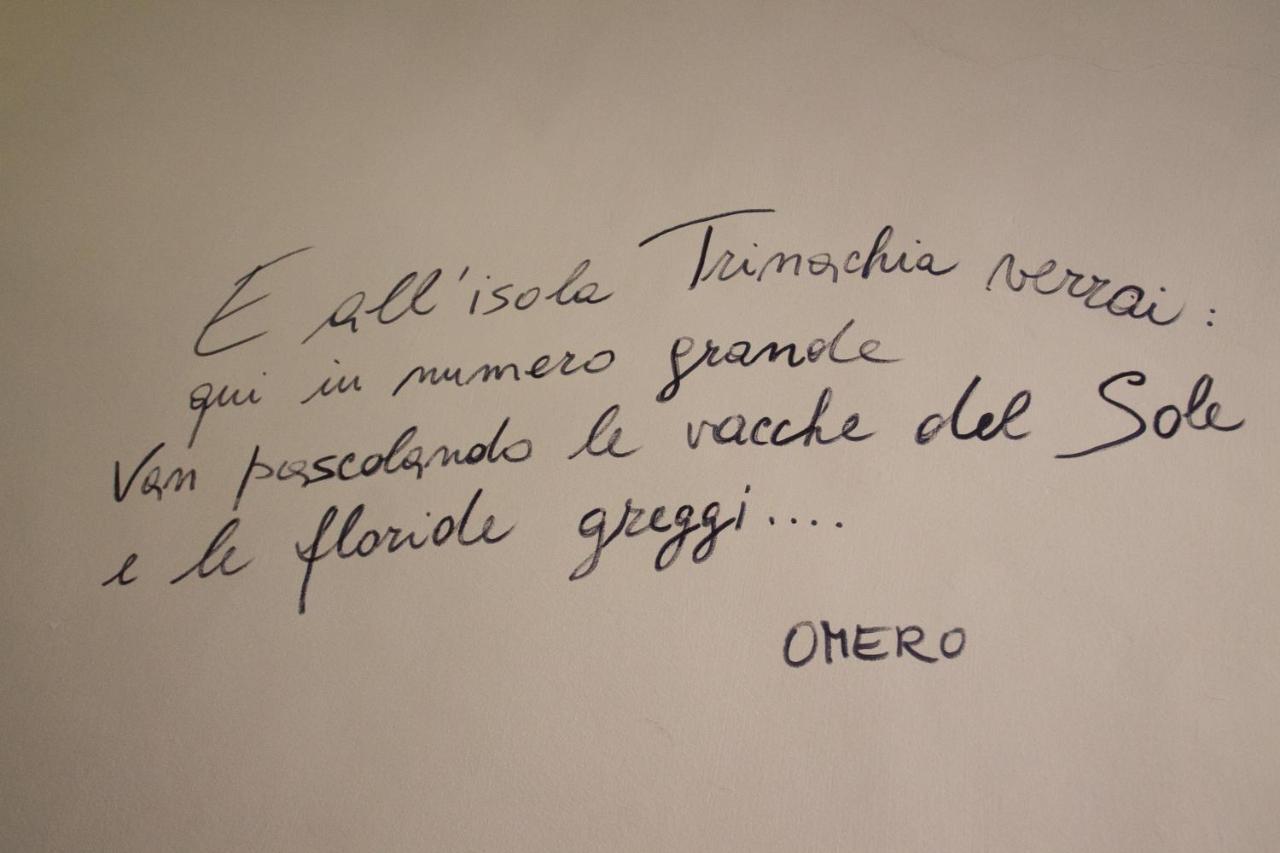 E all'isola Trinachia verrai:
qui in numero grande
Van pascolando le vacche del Sole
e le floride greggi....
OMERO